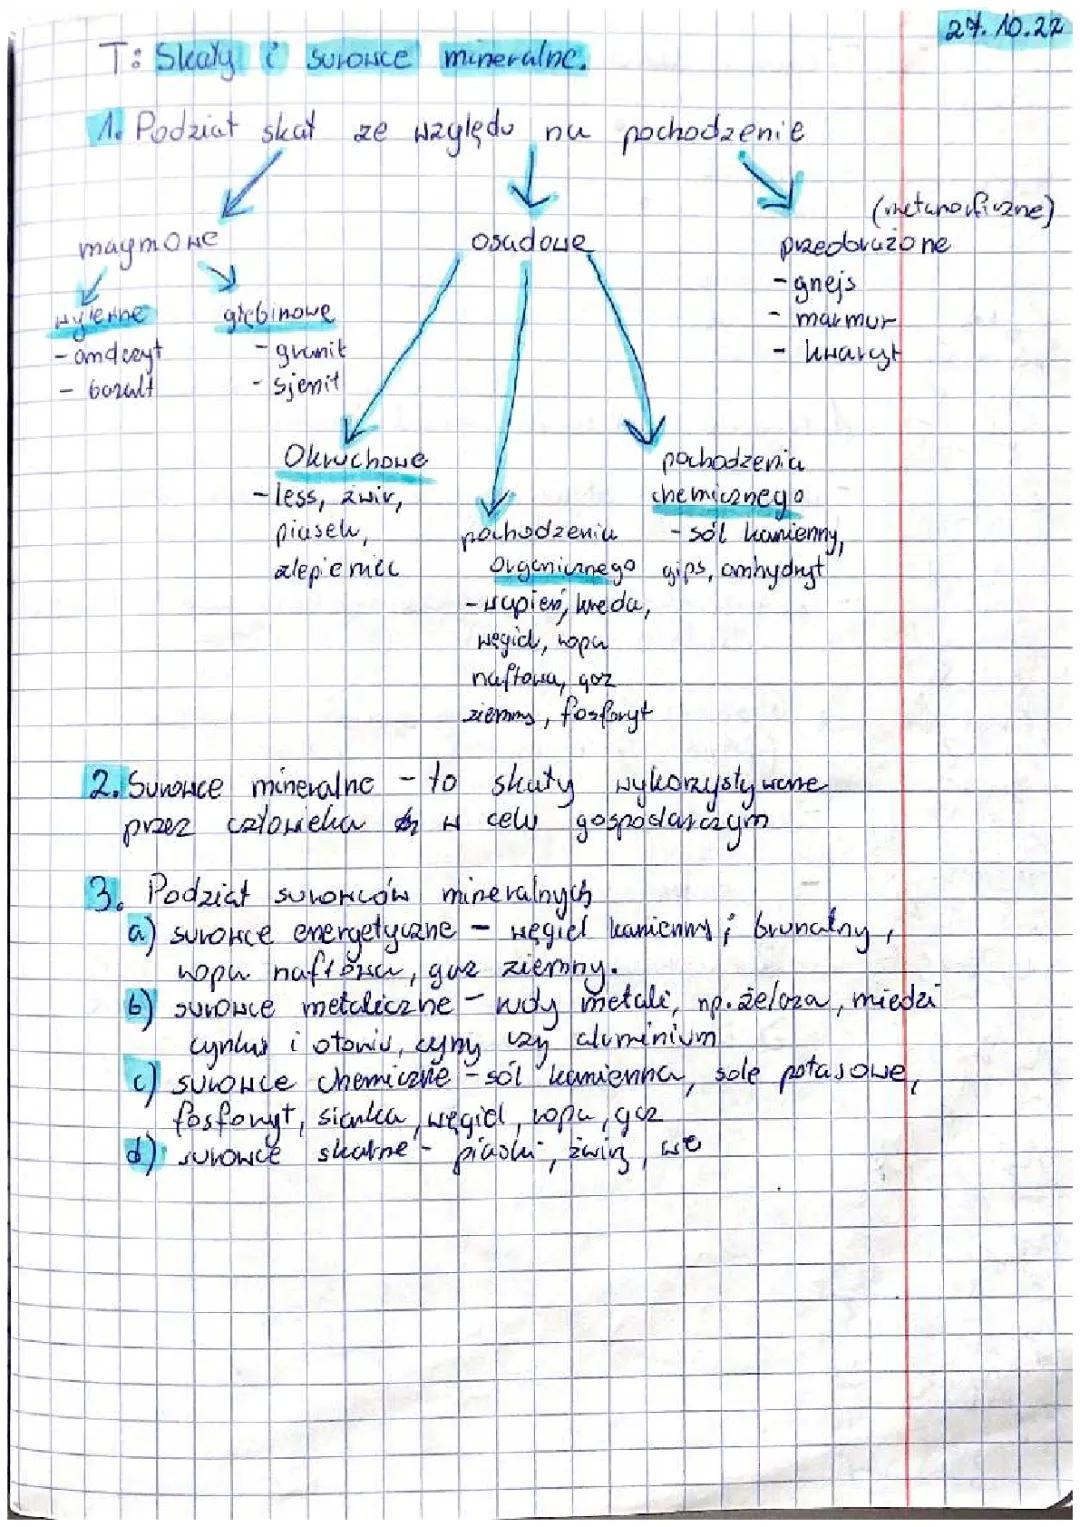 27.10.22
T: Skały i surowce mineralne.
1. Podział skał ze względu na pochodzenie
(metamorficzne)
magmowe
osadowe
przeobrażone
- gnejs
- marmur
- kwarcyt
wylewne
- andezyt
- bazalt
głębinowe
- granit
- sjenit
Okruchowe
- less, żwir,
piasek,
zlepieniec
pochodzenia
organicznego
- wapień, kreda,
węgiel, ropa
naftowa, gaz
ziemny, fosforyt
pochodzenia
chemicznego
- sól kamienny,
gips, anhydryt
2. Surowce mineralne - to skały wykorzystywane
przez człowieka w celu gospodarczym
3. Podział surowców mineralnych
a) surowce energetyczne - węgiel kamienny i brunatny,
ropa naftowa, gaz ziemny.
b) surowce metaliczne - rudy metali, np. żelaza, miedzi
cynku i ołowiu, cyny czy aluminium
c) surowce chemiczne - sól kamienna, sole potasowe,
fosforyt, siarka, węgiel, ropa, gaz
d) surowce skalne - piaski, żwiry, we